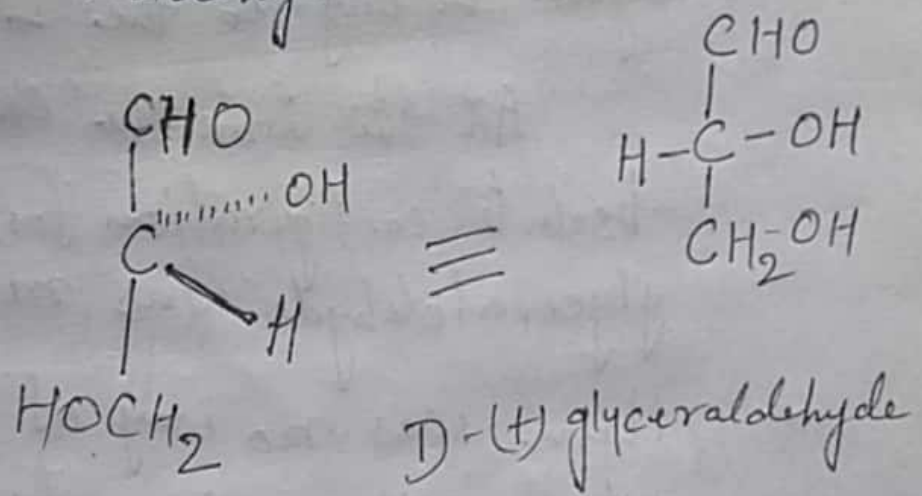 CHO
OH
C
H
HOCH2
≡
CHO
H-C-OH
CH2-OH
D-(+) glyceraldehyde